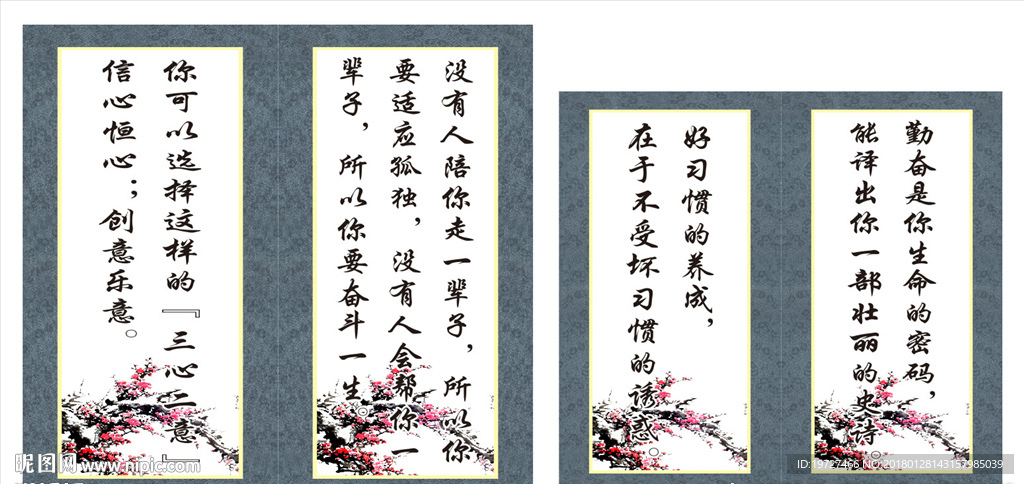 你可以选择这样的『三心二意』
信心恒心；创意乐意。
没有人陪你走一辈子，所以你
要适应孤独，没有人会帮你一
辈子，所以你要奋斗一生。
好习惯的养成，
在于不受坏习惯的诱惑。
勤奋是你生命的密码，
能译出你一部壮丽的史诗。
昵图网 www.nipic.com
ID:19727466 NO:20180128143157985039